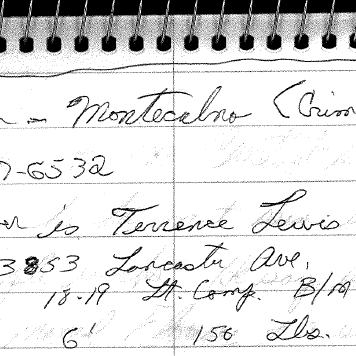 - Montecalvo (Crim
7-6532
is Terrence Lewis
3853 Lancaster Ave,
18-19 Lt. Comp. B/M
6' 150 Lbs.